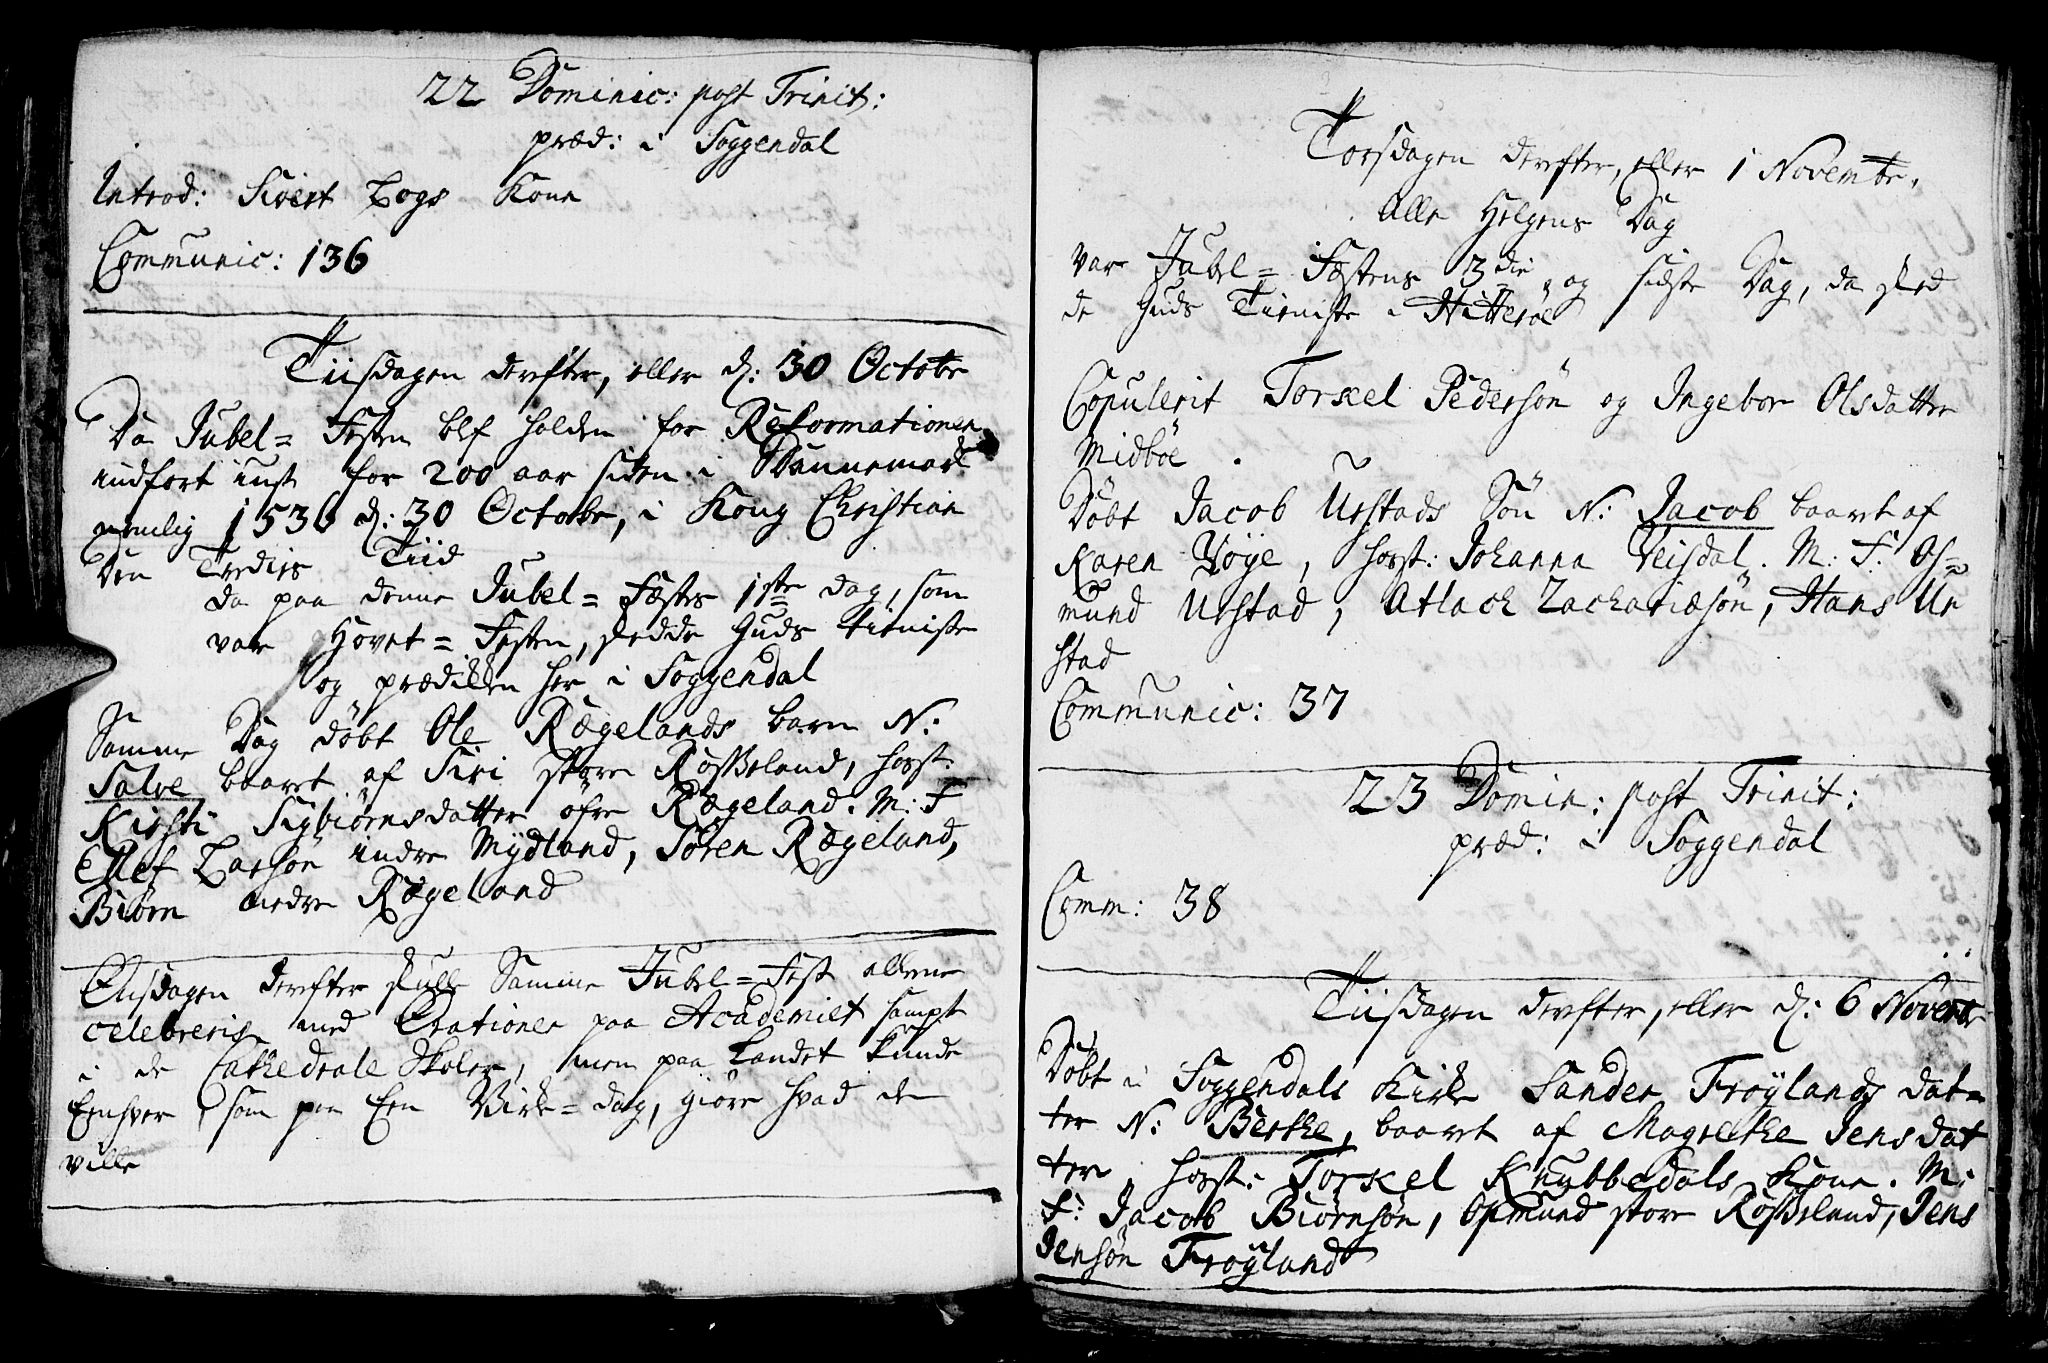 22 Dominic: post Trinit:
præd: i Soggendal
Introd: Sivert Logs Kone
Communic: 136
Tiisdagen derefter, eller d: 30 Octobr
Da Jubel= Festen blef holden for Reformationen
indført just for 200 aar siden i Dannemark
nemlig 1536 d: 30 Octobr, i Kong Christian
Den Tredies Tiid
da paa denne Jubel= Festes 1ste dag, som
var Hovet= Festen, skedde Guds tieniste
og prædikken her i Soggendal
Samme Dag døbt Ole Rægelands barn N:
Salve baaret af Siri store Røsseland, hosst:
Kirsti Sigbiørnsdatter øfre Rægeland. M: F
Ellef Larsøn indre Mydland, Søren Rægeland,
Biørn nedre Rægeland
Onsdagen derefter skulle Samme Jubel= Fest allene
celebreris med Orationer paa Academiet sampt
i de Cathedrale Skoler, men paa Landet kunde
Eenhver, som paa Een Virke= dag, giøre hvad de
ville
Torsdagen derefter, eller 1 Novembr,
Alle Helgens Dag
var Jubel= Festens 3die og sidste Dag, da sked
de Guds Tieniste i Hitterøe
Copulerit Torkel Pedersøn og Ingebor Olsdatter
Midbøe
Døbt Jacob Urstads Søn N: Jacob baaret af
Karen Vøye, hosst: Johanna Veisdal. M: F: Os=
mund Urstad, Atlach Zachariæsøn, Hans Ur
stad
Communic: 37
23 Domin: post Trinit:
præd: i Soggendal
Comm: 38
Tiisdagen derefter, eller d: 6 Novembr
Døbt i Soggendals Kirke Sander Frøylands dat=
ter N: Berthe, baaret af Magrethe Jensdat
ter, hosst: Torkel Knubbedals Kone. M:
F: Jacob Biørnsøn, Osmund store Røsseland, Jens
Jensøn Frøyland